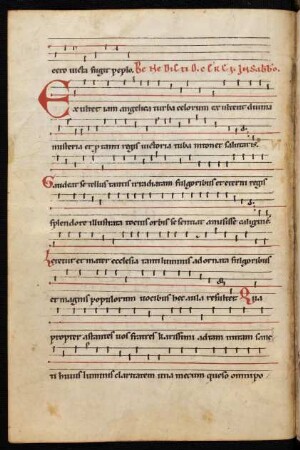 cero uicta fugit peplo. BeNeDiCtiO cerei
Exultet iam angelica turba celorum exultent diuina
misteria et p tanti regis uictoria tuba intonet salutaris.
Gaudeat se tellus tantis irradiatam fulgoribus et eterni regis
splendore illustrata totius orbis se sentiat amisisse caligine
Letetur et mater ecclesia tanti luminis adornata fulgoribus
et magnis populorum uocibus hec aula resultet. Qua
propter astantes uos fratres karissimi ad tam miram sanc
ti huius luminis claritatem una mecum queso omnipo